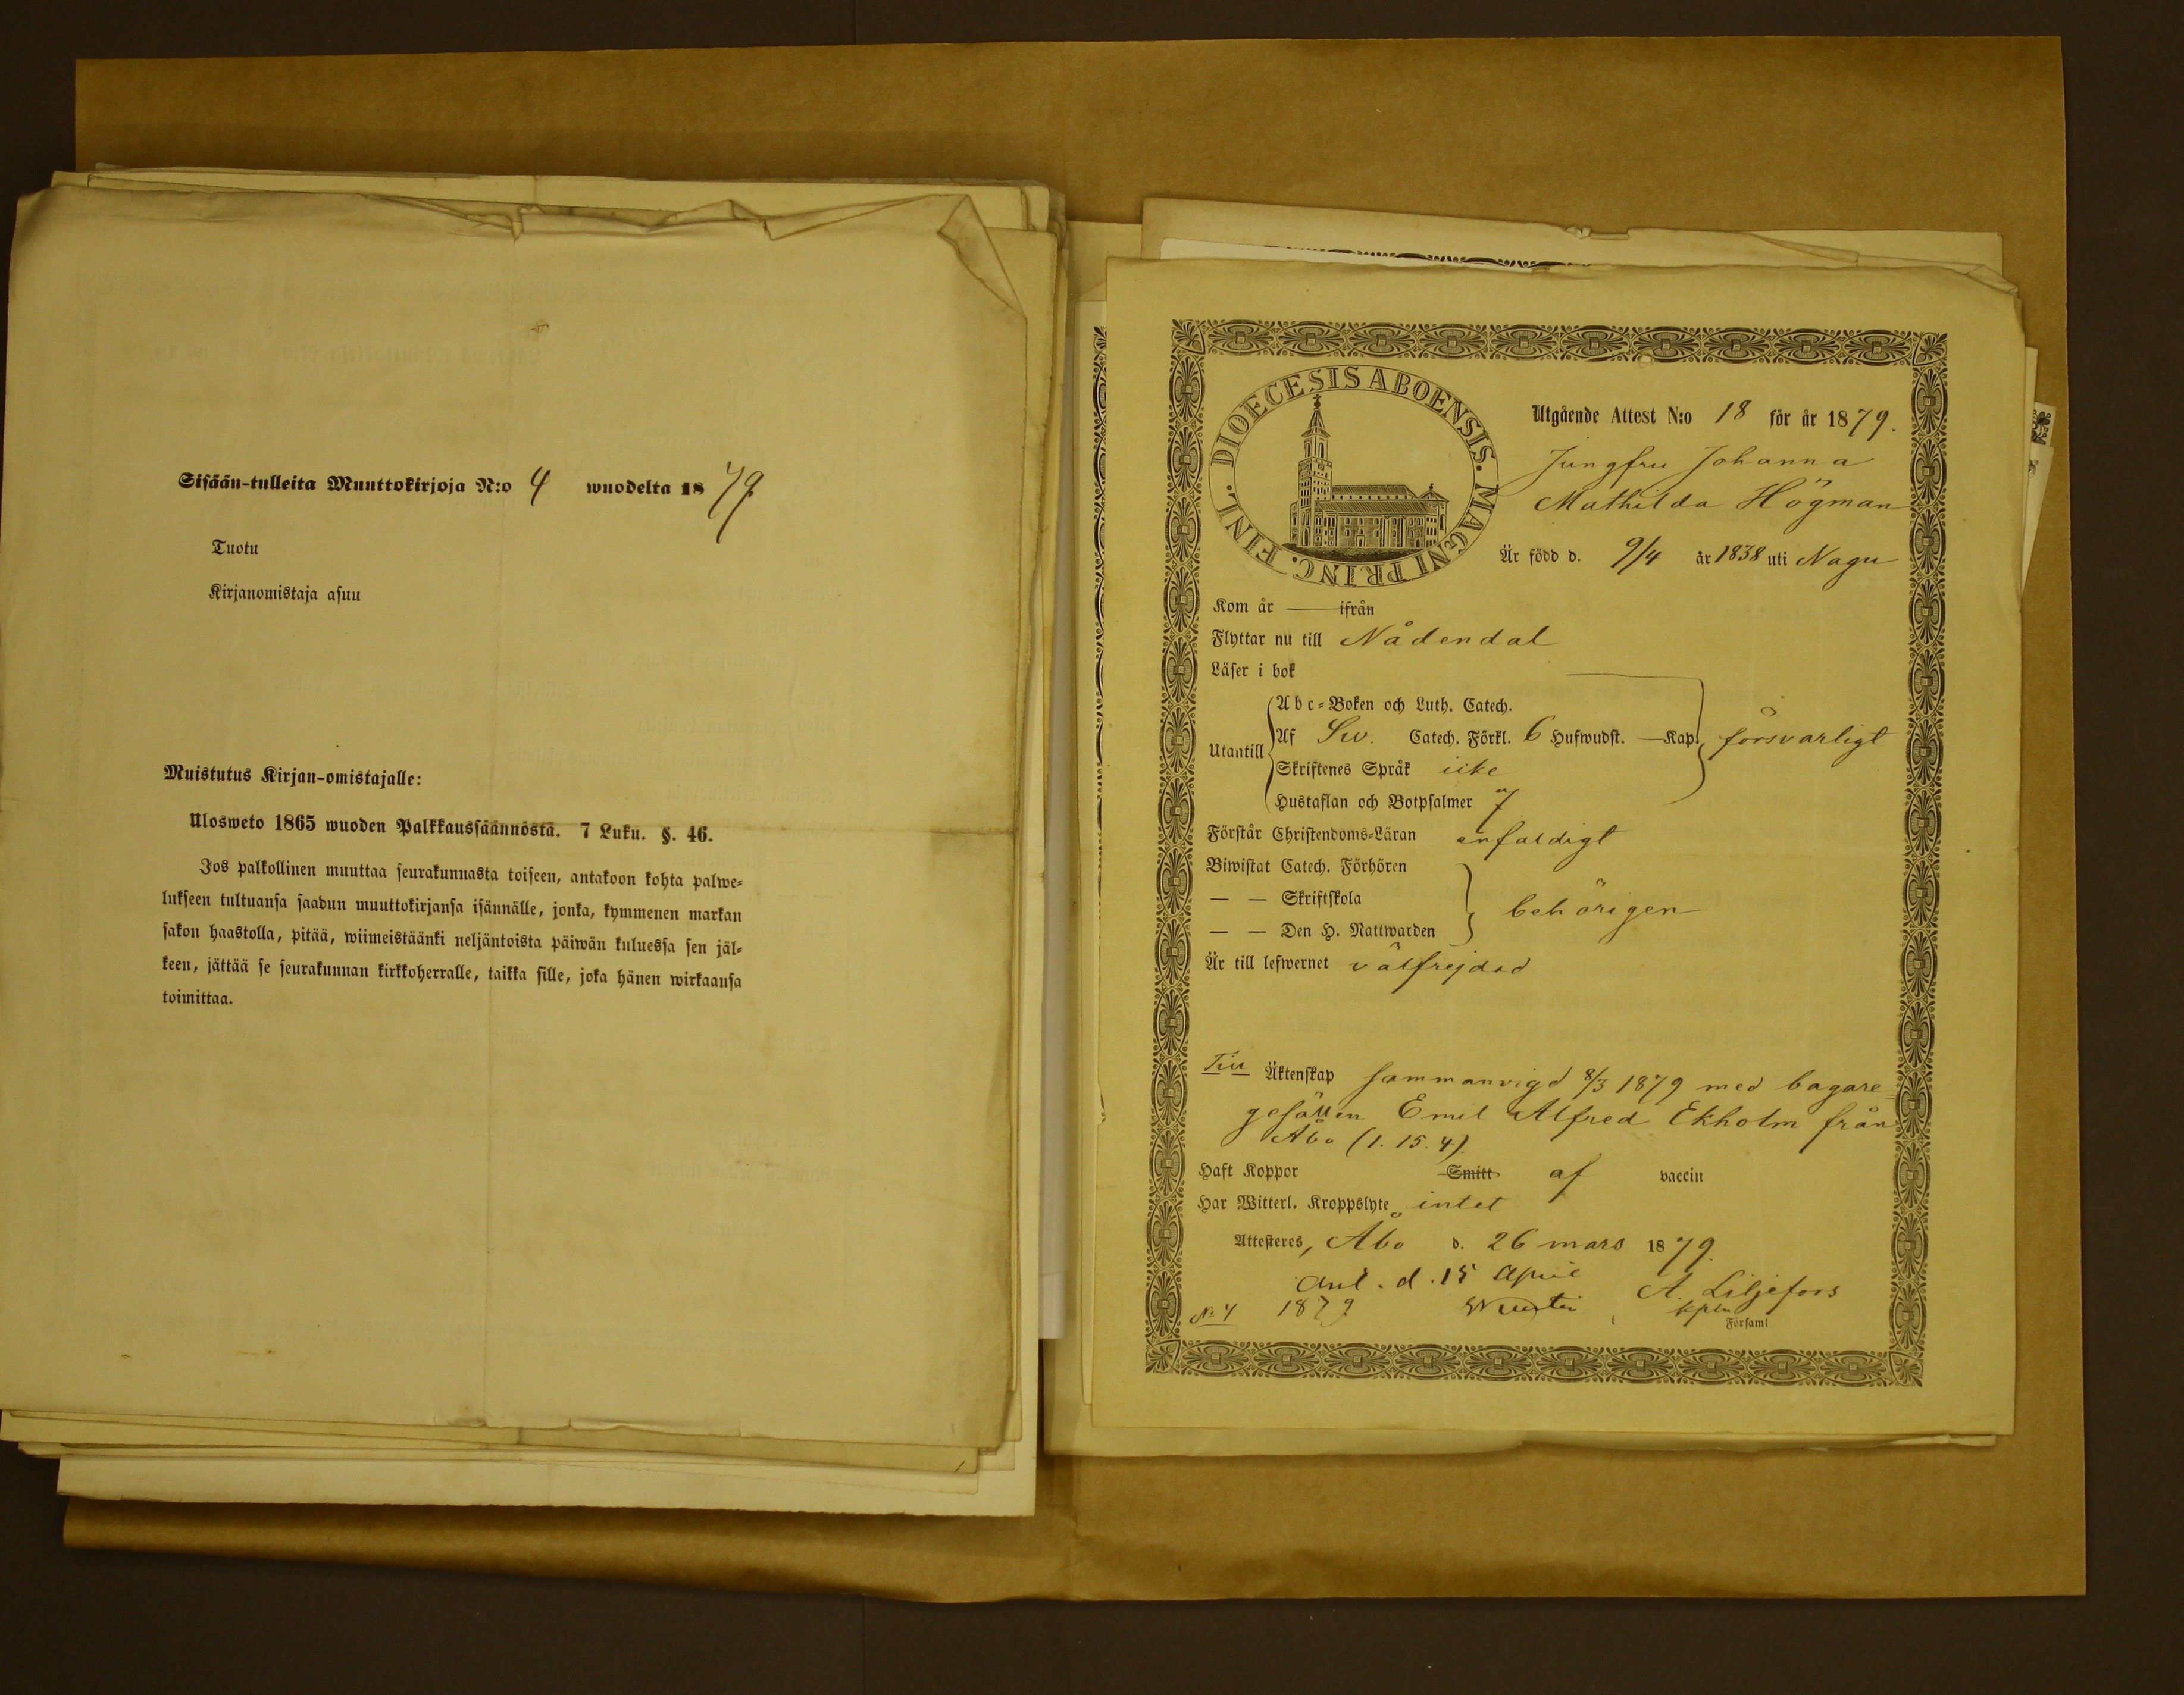 Sisään-tulleita Muuttokirjoja N:o 4 wuodelta 1879
Tuotu
Kirjanomistaja asuu
Muistutus Kirjan-omistajalle:
Ulosweto 1865 wuoden Palkkaussäännöstä. 7 Luku. §. 46.
Jos palkollinen muuttaa seurakunnasta toiseen, antakoon kohta palwe-
lukseen tultuansa saadun muuttokirjansa isännälle, jonka, kymmenen markan
sakon haastolla, pitää, wiimeistäänki neljäntoista päiwän kuluessa sen jäl-
keen, jättää se seurakunnan kirkkoherralle, taikka sille, joka hänen wirkaansa
toimittaa.
DIOECESIS ABOENSIS. MAGNI PRINC. FINL.
Utgående Attest N:o 18 för år 1879.
Jungfru Johanna
Mathilda Högman
Är född d. 9/4 år 1838 uti Nagu
Kom år — ifrån
Flyttar nu till Nådendal
Läser i bok
Utantill
Abc-Boken och Luth. Catech.
Af Sw. Catech. Förkl. 6 Hufwudst. — Kap. försvarligt
Skriftenes Språk icke
Hustaflan och Botpsalmer 7
Förstår Christendoms-Läran enfaldigt
Biwistat Catech. Förhören
— — Skriftskola behörigen
— — Den H. Nattwarden
Är till lefwernet välfrejdad
Till Äktenskap sammanvigd 8/3 1879 med bagare
gesällen Emil Alfred Ekholm från
Åbo (1. 15. 4).
Haft Koppor Smitt af vaccin
Har Witterl. Kroppslyte intet
Attesteres, Åbo d. 26 mars 1879.
Anl. d. 15 April A. Liljefors
No 4 1879 kpln
i Församl